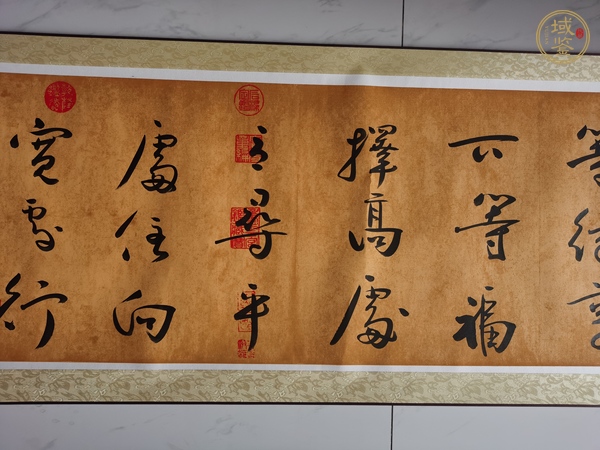 等緣享
下等福
擇高處
立尋平
處住向
寬處行
域鉴